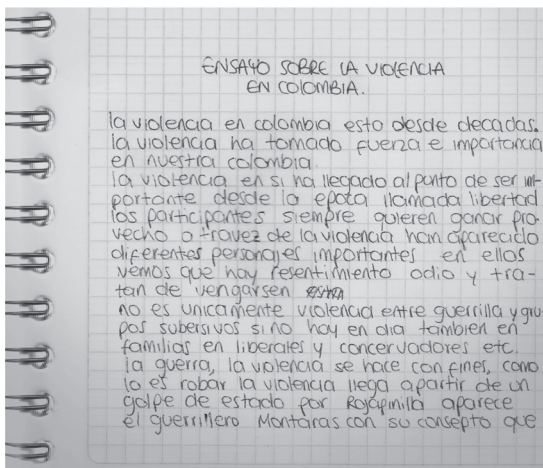 ENSAYO SOBRE LA VIOLENCIA
EN COLOMBIA.
la violencia en colombia esto desde decadas.
la violencia ha tomado fuerza e importancia
en nuestra colombia
la violencia en si ha llegado al punto de ser im-
portante desde la epota llamada libertad
los participantes siempre quieren ganar pro-
vecho a travez de la violencia han aparecido
diferentes personajes importantes en ellos
vemos que hay resentimiento odio y tra-
tan de vengarsen
no es unicamente violencia entre guerrilla y gru-
pos subersivos sino hoy en dia tambien en
familias en liberales y concervadores etc.
la guerra, la volencia se hace con fines, como
lo es robar la violencia llega apartir de un
golpe de estado por Rojapinilla aparece
el guerrillero Montaras con su consepto que